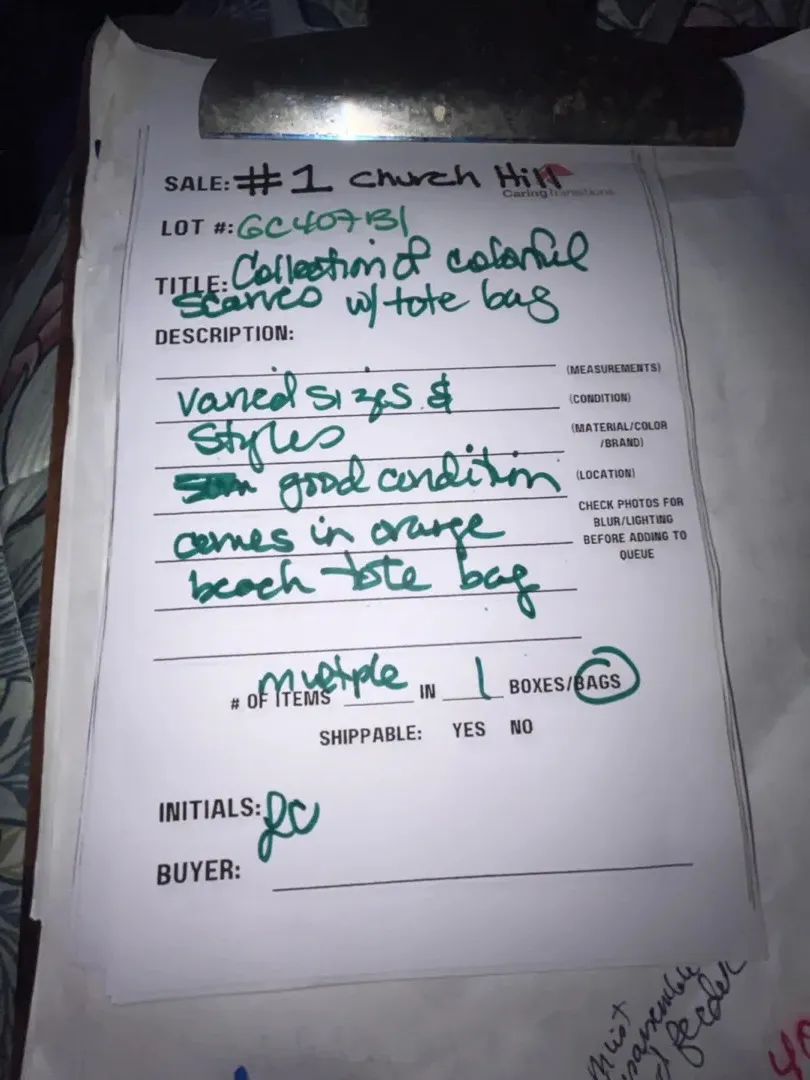 SALE: #1 Church Hill
Caring Transitions
LOT #: GC407B1
TITLE: Collection of colorful
scarves w/ tote bag
DESCRIPTION:
(MEASUREMENTS)
varied sizes &
(CONDITION)
styles
(MATERIAL/COLOR
/BRAND)
good condition
(LOCATION)
comes in orange
CHECK PHOTOS FOR
BLUR/LIGHTING
BEFORE ADDING TO
QUEUE
beach tote bag
# OF ITEMS multiple IN 1 BOXES/BAGS
SHIPPABLE: YES NO
INITIALS:
BUYER:
Must
feeder